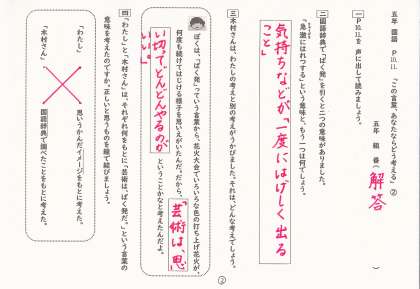 五年 国語 P10、11 「この言葉、あなたならどう考える」②
五年 組 番( 解答 )
一 P10、11を声に出して読みましょう。
二 国語辞典で、「ばく発」を引くと二つの意味がありました。
「急激にはれつする」という意味と、もう一つは何でしょう。
気持ちなどが一度にはげしく出る
こと
三 木村さんは、わたしの考えと別の考えがうかびました。それは、どんな考えでしょう。
ぼくは、「ばく発」っていう言葉から、花火大会でいろいろな色の打ち上げ花火が、
何度も続けてはじける様子を思いえがいたんだ。だから、「芸術は、思
い切ってどんどんやるのが
いい。」
ということかなと考えたんだよ。
四 「わたし」と「木村さん」は、それぞれ何をもとに「芸術は、ばく発だ。」という言葉の
意味を考えたのですか。正しいと思うものを線で結びましょう。
「わたし」
思いうかんだイメージをもとに考えた。
「木村さん」
国語辞典で調べたことをもとに考えた。
②